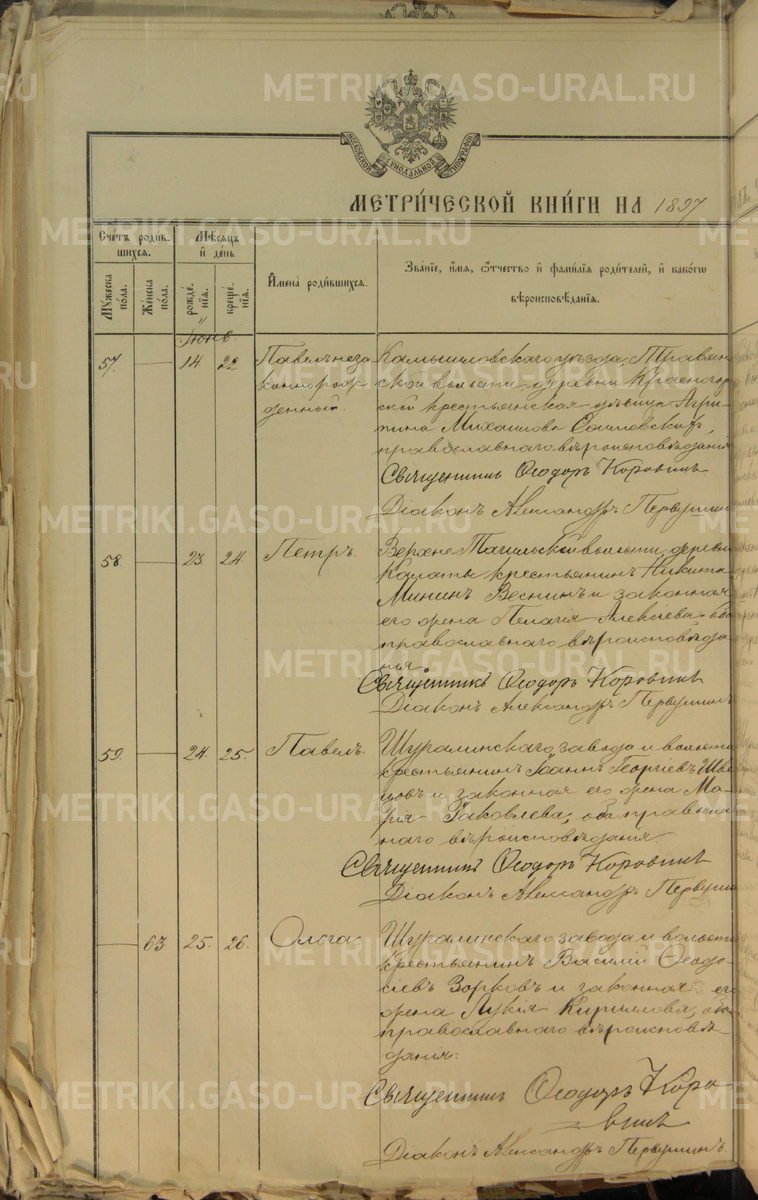 МОСКОВСКОЙ СѴНОДАЛЬНОЙ ТИПОГРАФІИ
МЕТРИ́ЧЕСКОЙ КНИ́ГИ НА 1897
Сче́тъ роди́в-
шихся.
Мѣ́сяцъ
и҆ де́нь
Мꙋ́жеска
по́ла.
Же́нска
по́ла.
рожде́-
нїѧ.
креще́-
нїѧ.
И҆мена̀ роди́вшихся.
Зва́нїе, и҆́мѧ, ѻ҆́тчество и҆ фами́лїѧ роди́телей, и҆ како́гѡ
вѣроисповѣ́данїѧ.
Іюнь
57. — 14 22 Павелъ неза Камышловскаго уѣзда, Травян
коннорож ской волости деревни Красногор
денный. ской крестьянская дѣвица Агри
пина Михаилова
православнаго вѣроисповѣданія
Священникъ Ѳеодоръ Коровинъ
Діаконъ Александръ Первушин
58. — 23. 24. Петръ. Верхне Тагильской волости деревни
Калаты крестьянинъ Никита
Мининъ Веснинъ и законная
его жена Пелагія Алексіева оба
православнаго вѣроисповѣда
нія
Священникъ Ѳеодоръ Коровинъ
Діаконъ Александръ Первушинъ
59. — 24. 25. Павелъ. Шуралинскаго завода и волости
крестьянинъ Іоаннъ Георгіевъ Шве
цовъ и законная его жена Ма
рія Іаковлева, оба православ
наго вѣроисповѣданія
Священникъ Ѳеодоръ Коровинъ
Діаконъ Александръ Первуши
— 63 25. 26. Ольга Шуралинскаго завода и волости
крестьянинъ Василій Ѳеодо-
сіевъ Зорковъ и законная его
жена Лукія Кириллова, оба
православнаго вѣроисповѣ
данія.
Священникъ Ѳеодоръ Коро-
винъ
Діаконъ Александръ Первушинъ.
METRIKI.GASO-URAL.RU